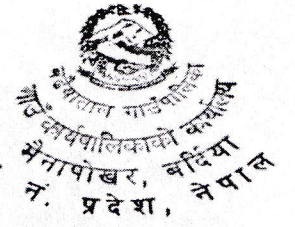 बढैयाताल गाउँपालिका
गाउँ कार्यपालिकाको कार्यालय
मैनापोखर, बर्दिया
नं. प्रदेश, नेपाल